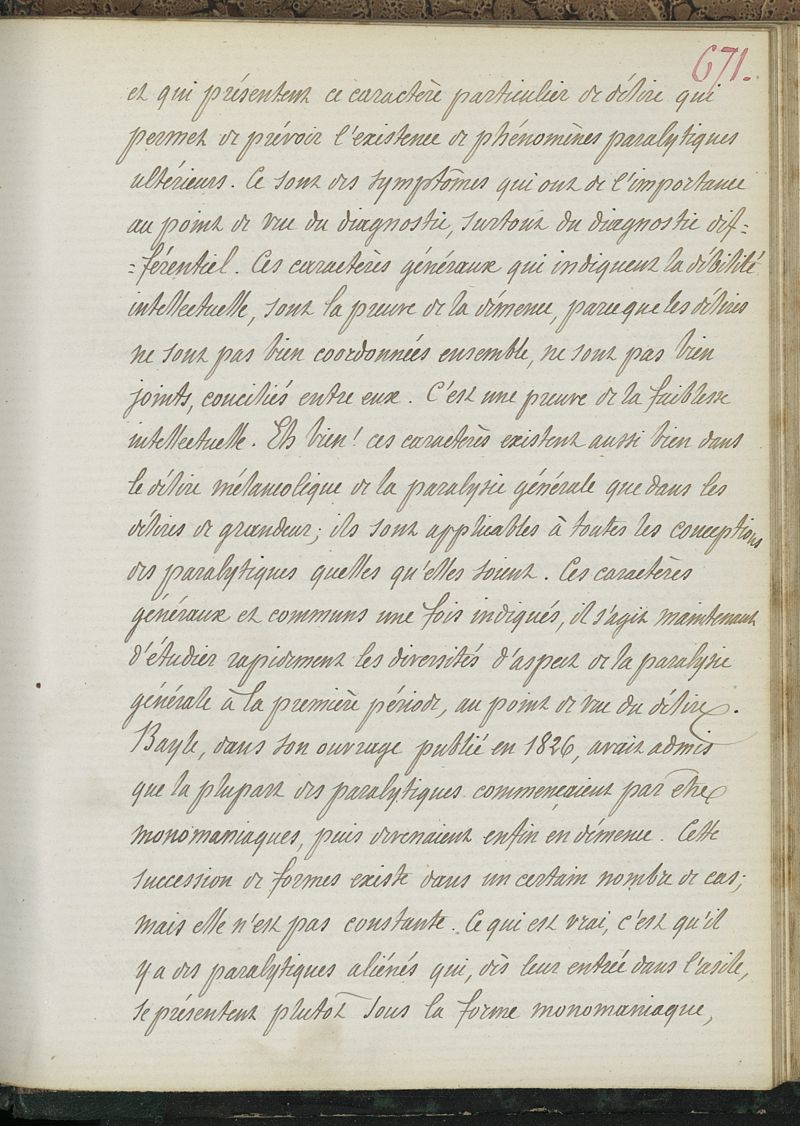 671.
et qui présentent ce caractère particulier de délire qui
permet de prévoir l'existence de phénomènes paralytiques
ultérieurs. Ce sont des symptômes qui ont de l'importance
au point de vue du diagnostic, surtout du diagnostic dif-
=férentiel. Ces caractères généraux qui indiquent la débilité
intellectuelle, sont la preuve de la démence, parceque les délires
ne sont pas bien coordonnées ensemble, ne sont pas bien
joints, conciliés entre eux. C'est une preuve de la faiblesse
intellectuelle. Eh bien! ces caractères existent aussi bien dans
le délire mélancolique de la paralysie générale que dans les
délires de grandeur; ils sont applicables à toutes les conceptions
des paralytiques quelles qu'elles soient. Ces caractères
généraux et communs une fois indiqués, il s'agit maintenant
d'étudier rapidement les diversités d'aspect de la paralysie
générale à la première période, au point de vue du délire.
Bayle, dans son ouvrage publié en 1826, avait admis
que la plupart des paralytiques commençaient par être
monomaniaques, puis devenaient enfin en démence. Cette
succession de formes existe dans un certain nombre de cas;
mais elle n'est pas constante. Ce qui est vrai, c'est qu'il
y a des paralytiques aliénés qui, dès leur entrée dans l'asile,
se présentent plutôt sous la forme monomaniaque,